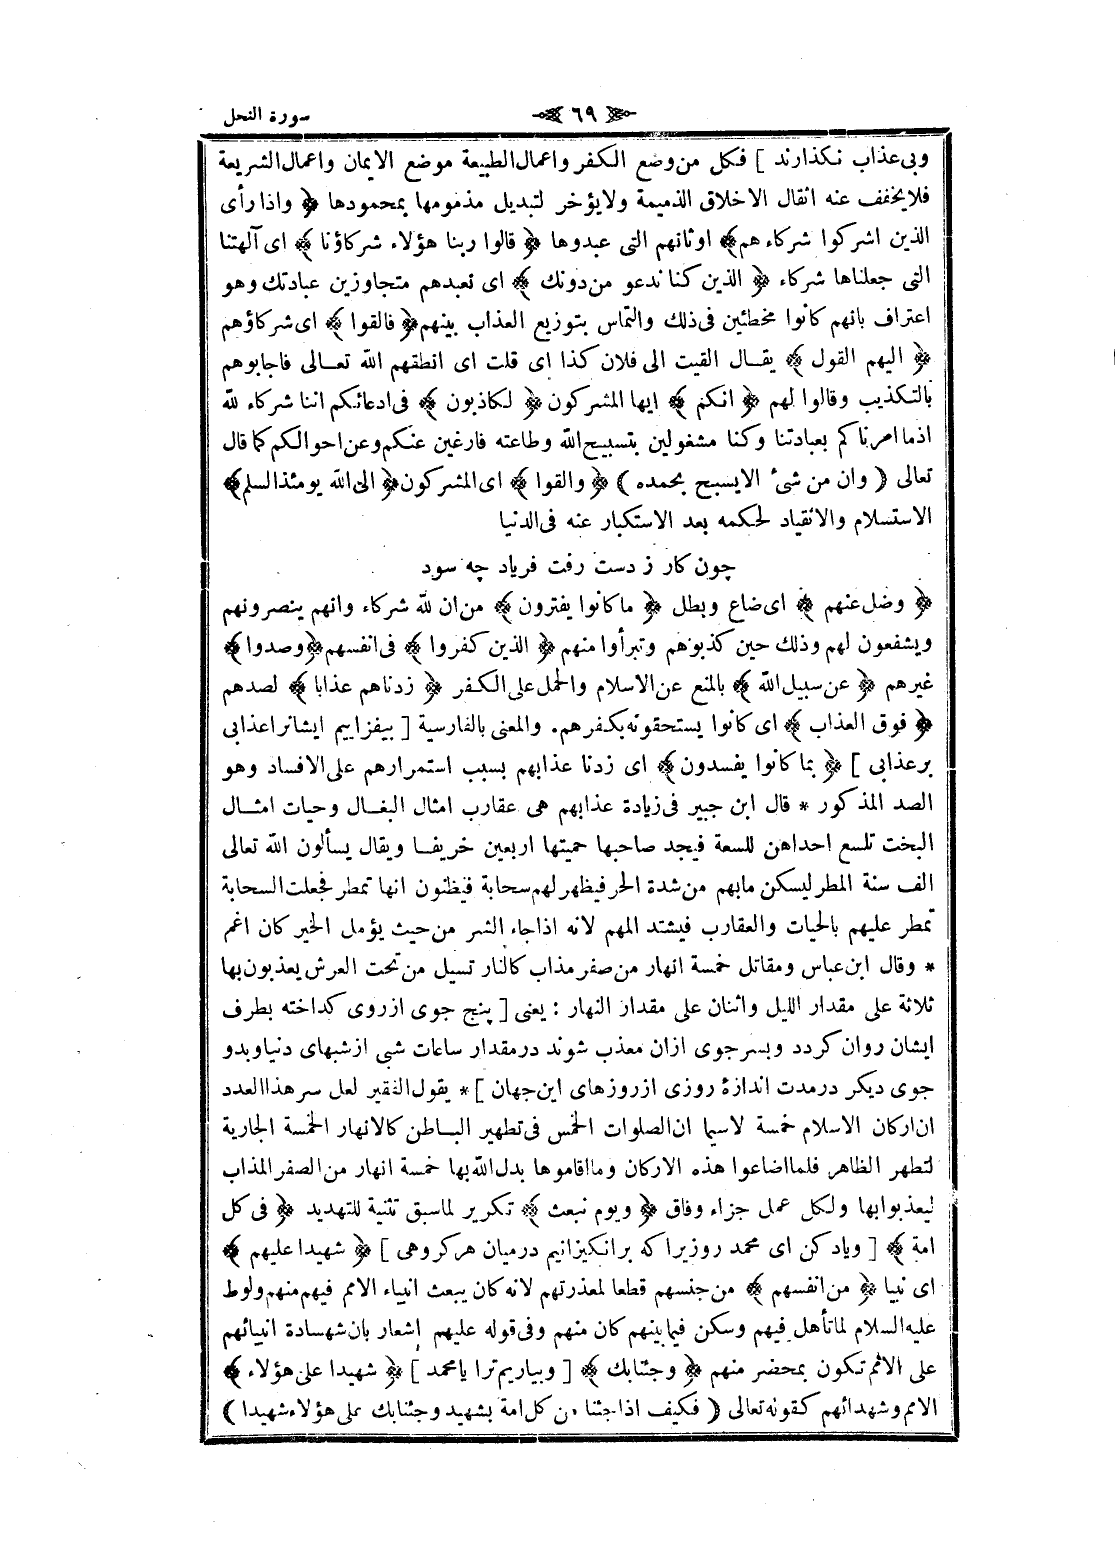 سورة النحل
﴿ ٦٩ ﴾
وبى عذاب نكذارند ] فكل من وضع الكفر واعمال الطبيعة موضع الايمان واعمال الشريعة
فلا يخفف عنه اثقال الاخلاق الذميمة ولا يؤخر لتبديل مذمومها بمحمودها ﴿ واذا رأى
الذين اشركوا شركاءهم ﴾ اوثانهم التى عبدوها ﴿ قالوا ربنا هؤلاء شركاؤنا ﴾ اى آلهتنا
التى جعلناها شركاء ﴿ الذين كنا ندعو من دونك ﴾ اى نعبدهم متجاوزين عبادتك وهو
اعتراف بانهم كانوا مخطئين فى ذلك والتماس بتوزيع العذاب بينهم ﴿ فالقوا ﴾ اى شركاؤهم
﴿ اليهم القول ﴾ يقال القيت الى فلان كذا اى قلت اى انطقهم الله تعالى فاجابوهم
بالتكذيب وقالوا لهم ﴿ انكم ﴾ ايها المشركون ﴿ لكاذبون ﴾ فى ادعائكم اننا شركاء لله
اذ ما امرناكم بعبادتنا وكنا مشغولين بتسبيح الله وطاعته فارغين عنكم وعن احوالكم كما قال
تعالى ( وان من شئ الا يسبح بحمده ) ﴿ والقوا ﴾ اى المشركون ﴿ الى الله يومئذ السلم ﴾
الاستسلام والانقياد لحكمه بعد الاستكبار عنه فى الدنيا
چون كار ز دست رفت فرياد چه سود
﴿ وضل عنهم ﴾ اى ضاع وبطل ﴿ ما كانوا يفترون ﴾ من ان لله شركاء وانهم ينصرونهم
ويشفعون لهم وذلك حين كذبوهم وتبرأوا منهم ﴿ الذين كفروا ﴾ فى انفسهم ﴿ وصدوا ﴾
غيرهم ﴿ عن سبيل الله ﴾ بالمنع عن الاسلام والحمل على الكفر ﴿ زدناهم عذابا ﴾ لصدهم
﴿ فوق العذاب ﴾ اى كانوا يستحقونه بكفرهم. والمعنى بالفارسية [ بيفزاييم ايشانرا عذابى
بر عذابى ] ﴿ بما كانوا يفسدون ﴾ اى زدنا عذابهم بسبب استمرارهم على الافساد وهو
الصد المذكور * قال ابن جبير فى زيادة عذابهم هى عقارب امثال البغال وحيات امثال
البخت تلسع احداهن للسعة فيجد صاحبها حميتها اربعين خريفا ويقال يسألون الله تعالى
الف سنة المطر ليسكن مابهم من شدة الحر فيظهر لهم سحابة فيظنون انها تمطر فجعلت السحابة
تمطر عليهم بالحيات والعقارب فيشتد المهم لانه اذا جاء الشر من حيث يؤمل الخير كان اغم
* وقال ابن عباس ومقاتل خمسة انهار من صفر مذاب كالنار تسيل من تحت العرش يعذبون بها
ثلاثة على مقدار الليل واثنان على مقدار النهار : يعنى [ پنج جوى از روى كداخته بطرف
ايشان روان كردد وبسر جوى ازان معذب شوند در مقدار ساعات شبى از شبهاى دنيا وبدو
جوى ديكر در مدت اندازهٔ روزى از روزهاى اين جهان ] * يقول الفقير لعل سر هذا العدد
ان اركان الاسلام خمسة لاسيما ان الصلوات الخمس فى تطهير الباطن كالانهار الخمسة الجارية
لتطهر الظاهر فلما اضاعوا هذه الاركان وما اقاموها بدل الله بها خمسة انهار من الصفر المذاب
ليعذبوا بها ولكل عمل جزاء وفاق ﴿ ويوم نبعث ﴾ تكرير لما سبق تثنية للتهديد ﴿ فى كل
امة ﴾ [ وياد كن اى محمد روزيرا كه برانكيزانيم درميان هر كروهى ] ﴿ شهيدا عليهم ﴾
اى نبيا ﴿ من انفسهم ﴾ من جنسهم قطعا لمعذرتهم لانه كان يبعث انبياء الامم فيهم منهم ولوط
عليه السلام لما تأهل فيهم وسكن فيما بينهم كان منهم وفى قوله عليهم اشعار بان شهادة انبيائهم
على الامم تكون بمحضر منهم ﴿ وجئنا بك ﴾ [ وبياريم ترا يا محمد ] ﴿ شهيدا على هؤلاء ﴾
الامم وشهدائهم كقوله تعالى ( فكيف اذا جئنا من كل امة بشهيد وجئنا بك على هؤلاء شهيدا )